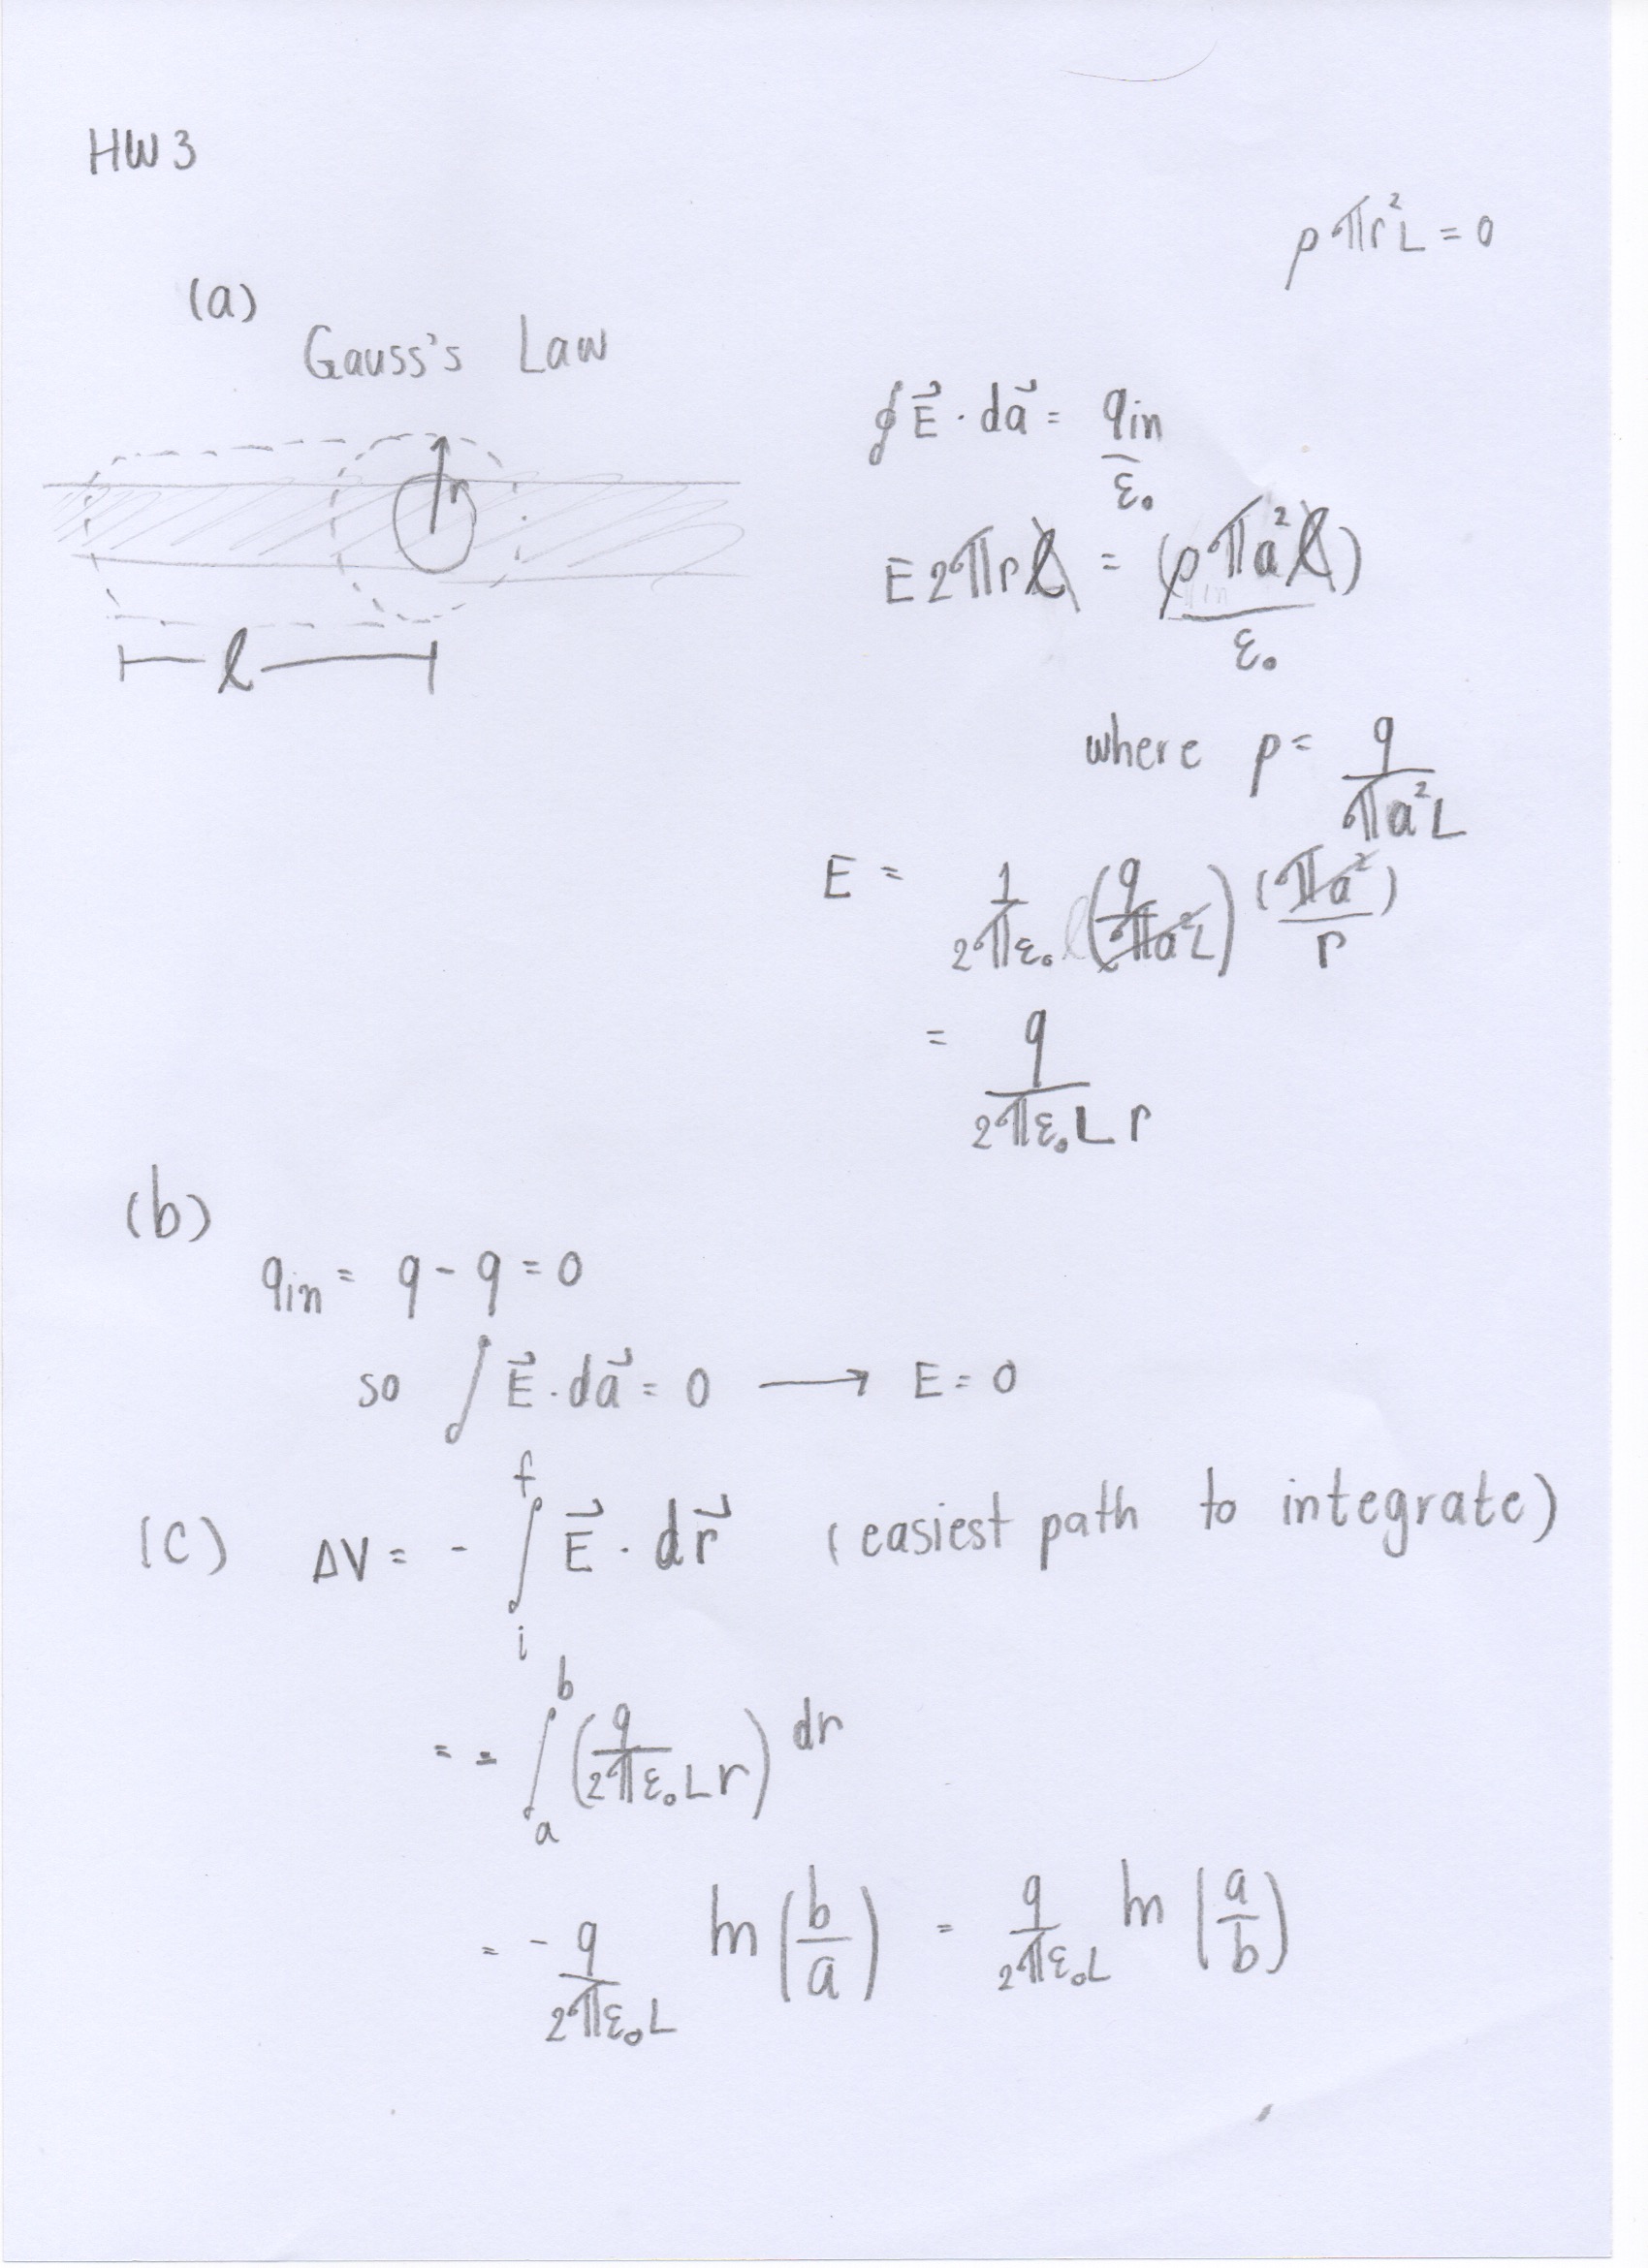 HW 3
ρπr²L = 0
(a)
Gauss's Law
r
l
∮E⃗ · da⃗ = qin/ε₀
E2πrl = (ρπa²l)/ε₀
where ρ = q/πa²L
E = 1/2πε₀ (q/πa²L) (πa²)/r
= q/2πε₀Lr
(b)
qin = q - q = 0
so ∫E⃗ · da⃗ = 0 → E = 0
(c) ΔV = - ∫ᵢᶠ E⃗ · dr⃗ (easiest path to integrate)
= - ∫ₐᵇ (q/2πε₀Lr) dr
= -q/2πε₀L ln(b/a) = q/2πε₀L ln(a/b)